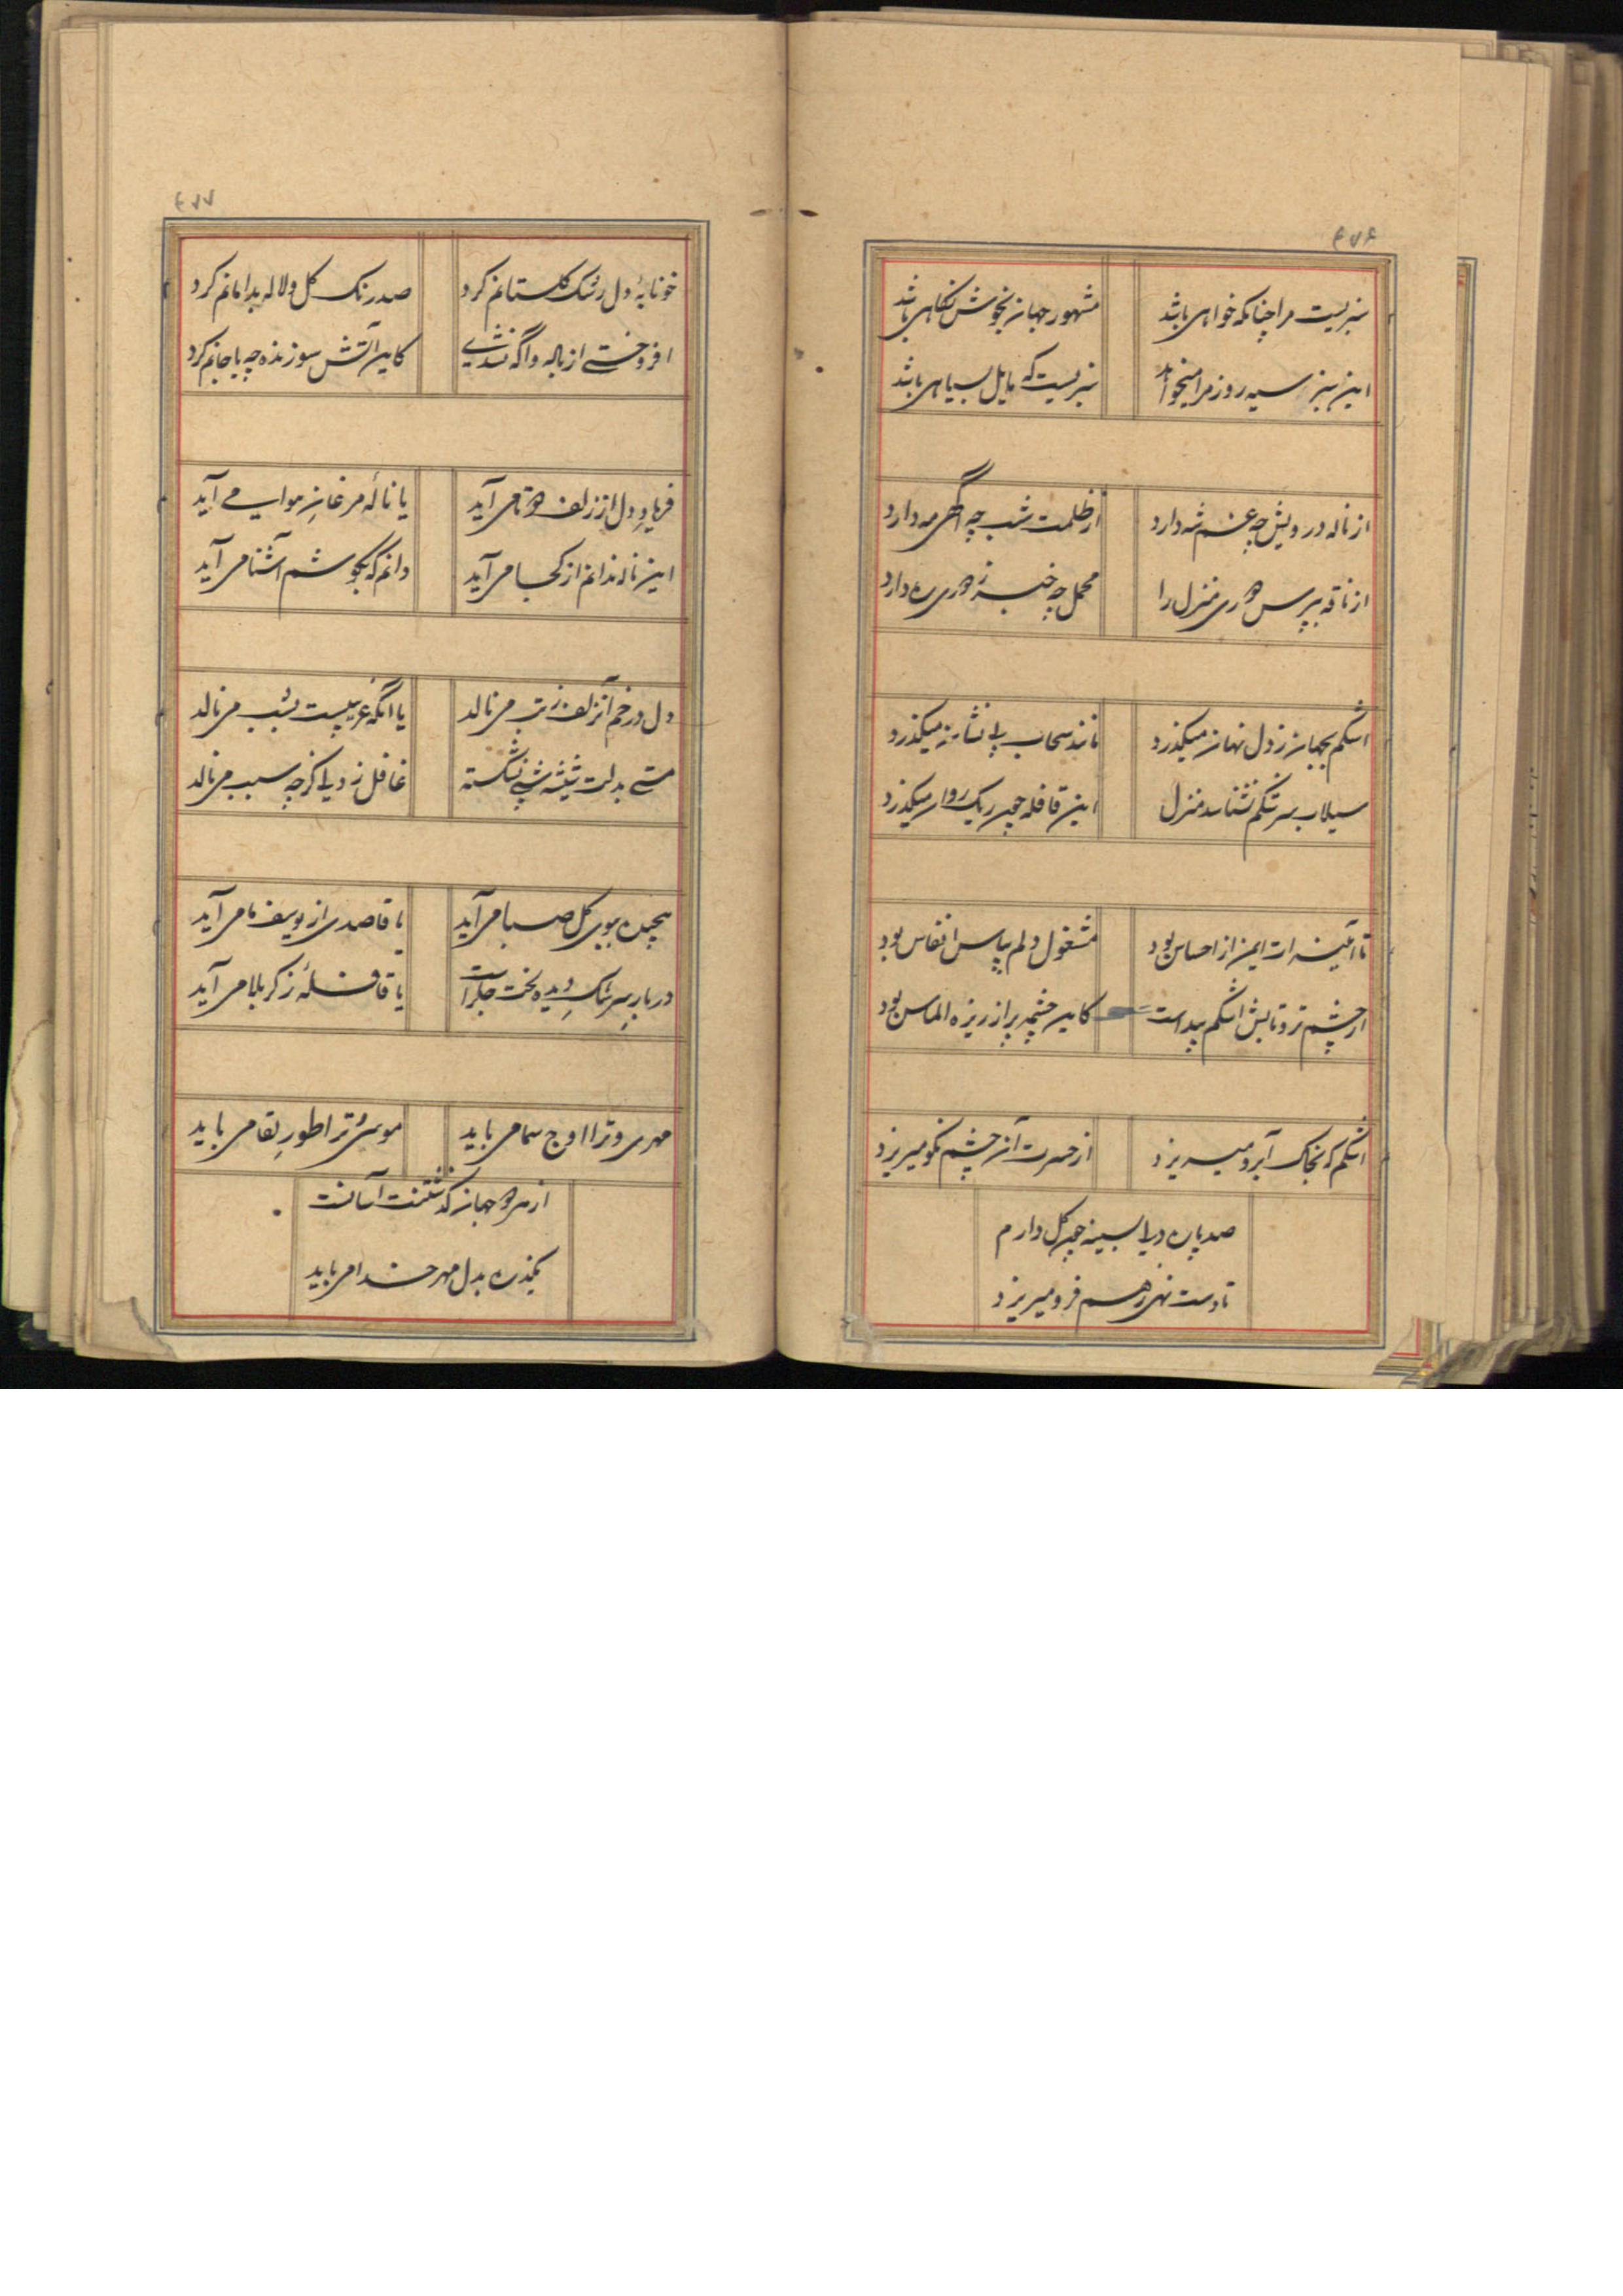 ۴۷۶
سبزیست مرا چنانکه خواهی باشد
مشهور جهان بخوش نگاهی باشد
این سبز سیه روز مرا میخواهد
سبزیست که مایل بسیاهی باشد
از ناله درویش چه غم شه دارد
از ظلمت شب چه آگهی مه دارد
از ناقه بپرس دوری منزل را
محمل چه خبر ز دوری ره دارد
اشکم بجهان ز دل نهان میگذرد
مانند سحاب بی نشان میگذرد
سیلاب سرشکم نشناسد منزل
این قافله چون ریگ روان میگذرد
تا آئینه ات ایمن از احساس بود
مشغول دلم بپاس انفاس بود
از چشم تر و تابش اشکم پیداست
کاین چشمه پر از ریزه الماس بود
اشکم که بخاک آبرو میریزد
از حسرت آن چشم نکو میریزد
صد پاره دلی بسینه چون گل دارم
تا دست نهی ز هم فرو میریزد
۴۷۷
خونابهٔ دل رشک گلستانم کرد
صد رنگ گل و لاله بدامانم کرد
افروختی از ناله و آگه نشدی
کاین آتش سوزنده چه با جانم کرد
فریاد دل از زلف دوتا می آید
یا نالهٔ مرغان هوا می آید
این ناله ندانم از کجا می آید
دانم که بگوشم آشنا می آید
دل در خم آن زلف ز تب می نالد
یا آنکه غریبیست بشب می نالد
مستی بدلت شیشه شبی نشکسته
غافل ز دلی کز چه سبب می نالد
همچون بوی گل صبا می آید
یا قاصدی از یوسف ما می آید
در بار سرشک دیده لخت جگر است
یا قافلهٔ ز کربلا می آید
مهدی و ترا اوج سما می باید
موسیٰ و ترا طور لقا می باید
از هر دو جهان گذشتنت آسانست
یکذره بدل مهر خدا می باید